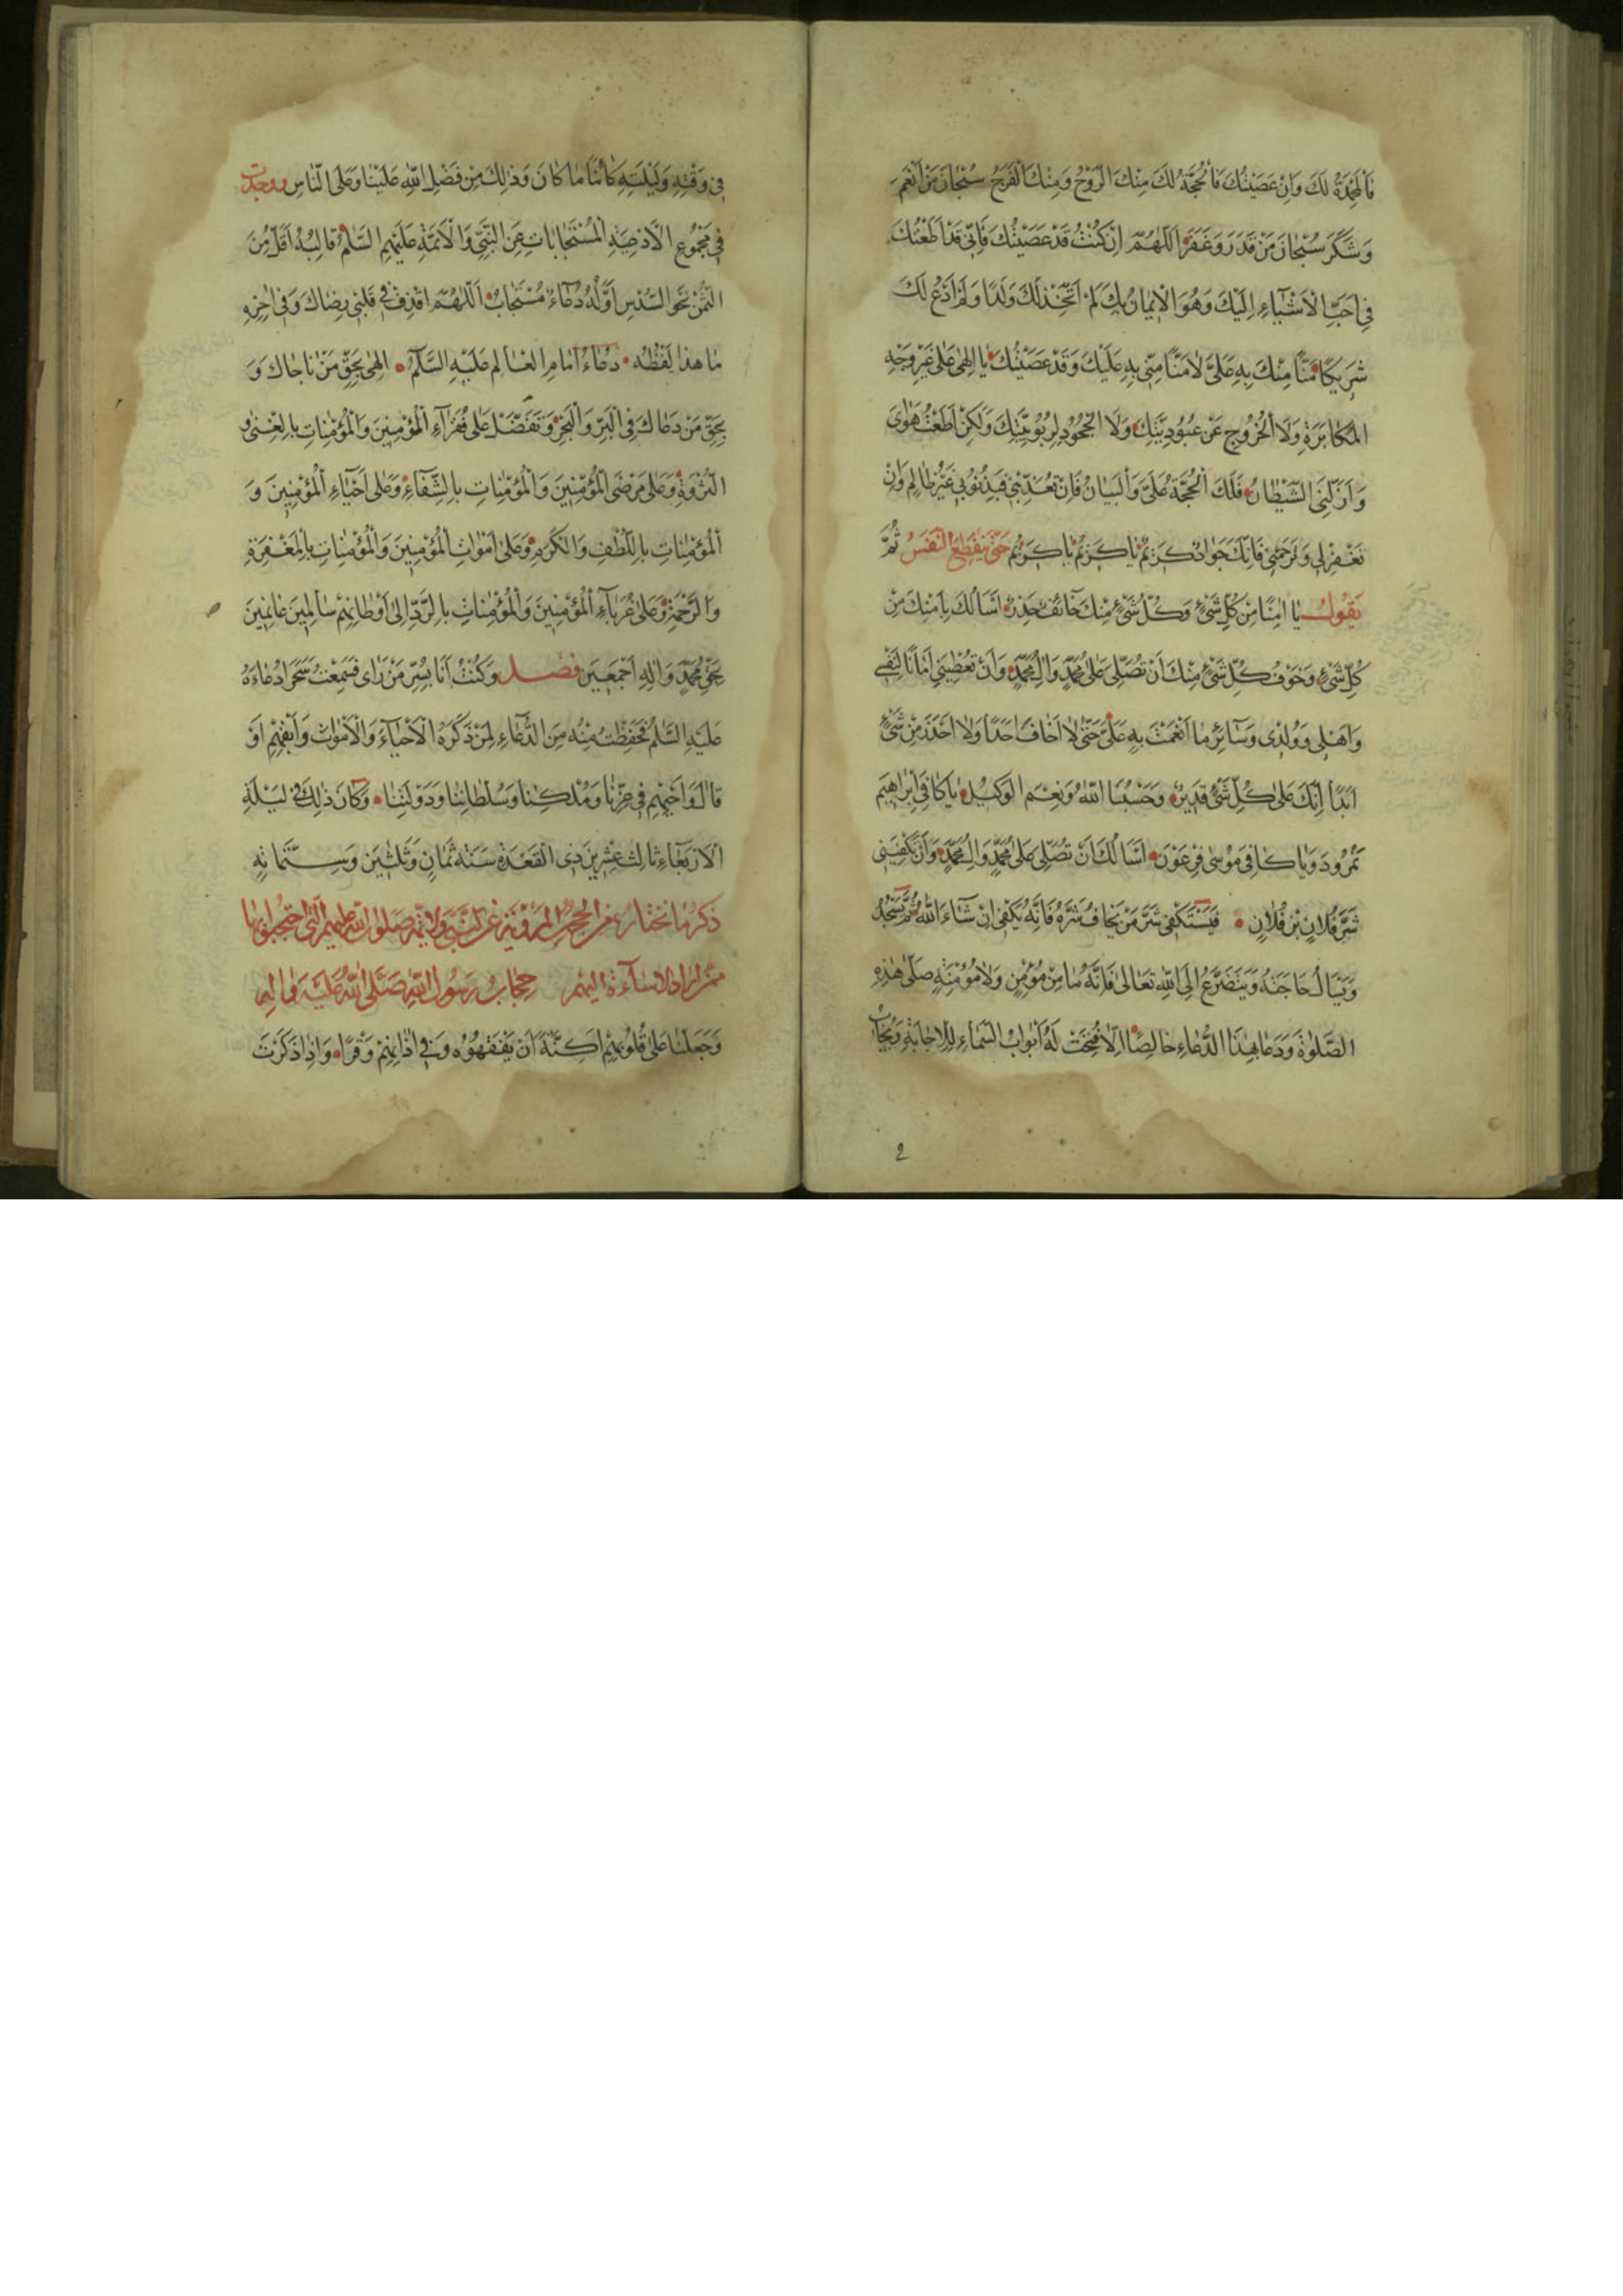 فَالْمَحْمِدَةُ لَكَ وَاِنْ عَصَيْتُكَ فَالْحُجَّةُ لَكَ مِنْكَ الرَّوْحُ وَمِنْكَ الْفَرَجُ سُبْحَانَ مَنْ اَنْعَمَ
وَشَكَرَ سُبْحَانَ مَنْ قَدَرَ وَغَفَرَ اَللّٰهُمَّ اِنْ كُنْتُ قَدْ عَصَيْتُكَ فَاِنِّى قَدْ اَطَعْتُكَ
فِى اَحَبِّ الْاَشْيَآءِ اِلَيْكَ وَهُوَ الْاِيمَانُ بِكَ لَمْ اَتَّخِذْ لَكَ وَلَدًا وَلَمْ اَدْعُ لَكَ
شَرِيكًا مَنًّا مِنْكَ بِهِ عَلَىَّ لَا مَنًّا مِنِّى بِهِ عَلَيْكَ وَقَدْ عَصَيْتُكَ يَا اِلٰهِى عَلٰى غَيْرِ وَجْهِ
الْمُكَابَرَةِ وَلَا الْخُرُوجِ عَنْ عُبُودِيَّتِكَ وَلَا الْجُحُودِ لِرُبُوبِيَّتِكَ وَلٰكِنْ اَطَعْتُ هَوَاىَ
وَاَزَلَّنِىَ الشَّيْطَانُ فَلَكَ الْحُجَّةُ عَلَىَّ وَالْبَيَانُ فَاِنْ تُعَذِّبْنِى فَبِذُنُوبِى غَيْرُ ظَالِمٍ وَاِنْ
تَغْفِرْ لِى وَتَرْحَمْنِى فَاِنَّكَ جَوَادٌ كَرِيمٌ يَا كَرِيمُ يَا كَرِيمُ حَتّٰى يَنْقَطِعَ النَّفَسُ ثُمَّ
يَقُولُ يَا اٰمِنًا مِنْ كُلِّ شَىْءٍ وَكُلُّ شَىْءٍ مِنْكَ خَائِفٌ حَذِرٌ اَسْاَلُكَ بِاَمْنِكَ مِنْ
كُلِّ شَىْءٍ وَخَوْفِ كُلِّ شَىْءٍ مِنْكَ اَنْ تُصَلِّىَ عَلٰى مُحَمَّدٍ وَاٰلِ مُحَمَّدٍ وَاَنْ تُعْطِيَنِى اَمَانًا لِنَفْسِى
وَاَهْلِى وَوُلْدِى وَسَآئِرِ مَا اَنْعَمْتَ بِهِ عَلَىَّ حَتّٰى لَا اَخَافَ اَحَدًا وَلَا اَحْذَرَ مِنْ شَىْءٍ
اَبَدًا اِنَّكَ عَلٰى كُلِّ شَىْءٍ قَدِيرٌ وَحَسْبُنَا اللّٰهُ وَنِعْمَ الْوَكِيلُ يَا كَافِىَ اِبْرَاهِيمَ
نُمْرُودَ وَيَا كَافِىَ مُوسٰى فِرْعَوْنَ اَسْاَلُكَ اَنْ تُصَلِّىَ عَلٰى مُحَمَّدٍ وَاٰلِ مُحَمَّدٍ وَاَنْ تَكْفِيَنِى
شَرَّ فُلَانِ بْنِ فُلَانٍ فَيَسْتَكْفِى شَرَّ مَنْ يَخَافُ شَرَّهُ فَاِنَّهُ يُكْفٰى اِنْ شَآءَ اللّٰهُ ثُمَّ يَسْجُدُ
وَيَسْاَلُ حَاجَتَهُ وَيَتَضَرَّعُ اِلَى اللّٰهِ تَعَالٰى فَاِنَّهُ مَا مِنْ مُؤْمِنٍ وَلَا مُؤْمِنَةٍ صَلّٰى هٰذِهِ
الصَّلٰوةَ وَدَعَا بِهٰذَا الدُّعَاءِ خَالِصًا اِلَّا فُتِحَتْ لَهُ اَبْوَابُ السَّمَاءِ لِلْاِجَابَةِ وَيُجَابُ
فِى وَقْتِهِ وَلَيْلَتِهِ كَائِنًا مَا كَانَ وَذٰلِكَ مِنْ فَضْلِ اللّٰهِ عَلَيْنَا وَعَلَى النَّاسِ ووجدت
فِى مَجْمُوعِ الْاَدْعِيَةِ الْمُسْتَجَابَاتِ عَنِ النَّبِىِّ وَالْاَئِمَّةِ عَلَيْهِمُ السَّلَمُ قَالِبُهُ اَقَلُّ مِنَ
الثُّمْنِ نَحْوَ السُّدْسِ اَوَّلُهُ دُعَاءٌ مُسْتَجَابٌ اَللّٰهُمَّ اقْذِفْ فِى قَلْبِى رِضَاكَ وَفِى اٰخِرِهِ
مَا هٰذَا لَفْظُهُ دُعَاءُ اِمَامِ الْعَالَمِ عَلَيْهِ السَّلَامُ اِلٰهِى بِحَقِّ مَنْ نَاجَاكَ وَ
بِحَقِّ مَنْ دَعَاكَ فِى الْبَرِّ وَالْبَحْرِ وَتَفَضَّلْ عَلٰى فُقَرَآءِ الْمُؤْمِنِينَ وَالْمُؤْمِنَاتِ بِالْغِنٰى وَ
الثَّرْوَةِ وَعَلٰى مَرْضَى الْمُؤْمِنِينَ وَالْمُؤْمِنَاتِ بِالشِّفَآءِ وَعَلٰى اَحْيَاءِ الْمُؤْمِنِينَ وَ
الْمُؤْمِنَاتِ بِاللُّطْفِ وَالْكَرَمِ وَعَلٰى اَمْوَاتِ الْمُؤْمِنِينَ وَالْمُؤْمِنَاتِ بِالْمَغْفِرَةِ
وَالرَّحْمَةِ وَعَلٰى غُرَبَآءِ الْمُؤْمِنِينَ وَالْمُؤْمِنَاتِ بِالرَّدِّ اِلٰى اَوْطَانِهِمْ سَالِمِينَ غَانِمِينَ
بِحَقِّ مُحَمَّدٍ وَاٰلِهِ اَجْمَعِينَ فصل وَكُنْتُ اَنَا بِسُرَّ مَنْ رَاٰى فَسَمِعْتُ سَحَرًا دُعَاءَهُ
عَلَيْهِ السَّلَمُ فَحَفِظْتُ مِنْهُ مِنَ الدُّعَاءِ لِمَنْ ذَكَرَهُ الْاَحْيَآءَ وَالْاَمْوَاتَ وَاَبْقِهِمْ اَوْ
قَالَ وَاَحْيِهِمْ فِى عِزِّنَا وَمُلْكِنَا وَسُلْطَانِنَا وَدَوْلَتِنَا وَكَانَ ذٰلِكَ فِى لَيْلَةِ
الْاَرْبِعَاءِ ثَالِثَ عِشْرِينَ ذِى الْقَعْدَةِ سَنَةَ ثَمَانٍ وَثَلٰثِينَ وَسِتَّمَائَةٍ
ذكر ما نختاره من الحجب المروية عن النبى والائمة صلوات الله عليهم التى احتجبوا بها
ممن اراد الاساءة اليهم حِجَابُ رَسُولِ اللّٰهِ صَلَّى اللّٰهُ عَلَيْهِ وَاٰلِهِ
وَجَعَلْنَا عَلٰى قُلُوبِهِمْ اَكِنَّةً اَنْ يَفْقَهُوهُ وَفِى اٰذَانِهِمْ وَقْرًا وَاِذَا ذَكَرْتَ